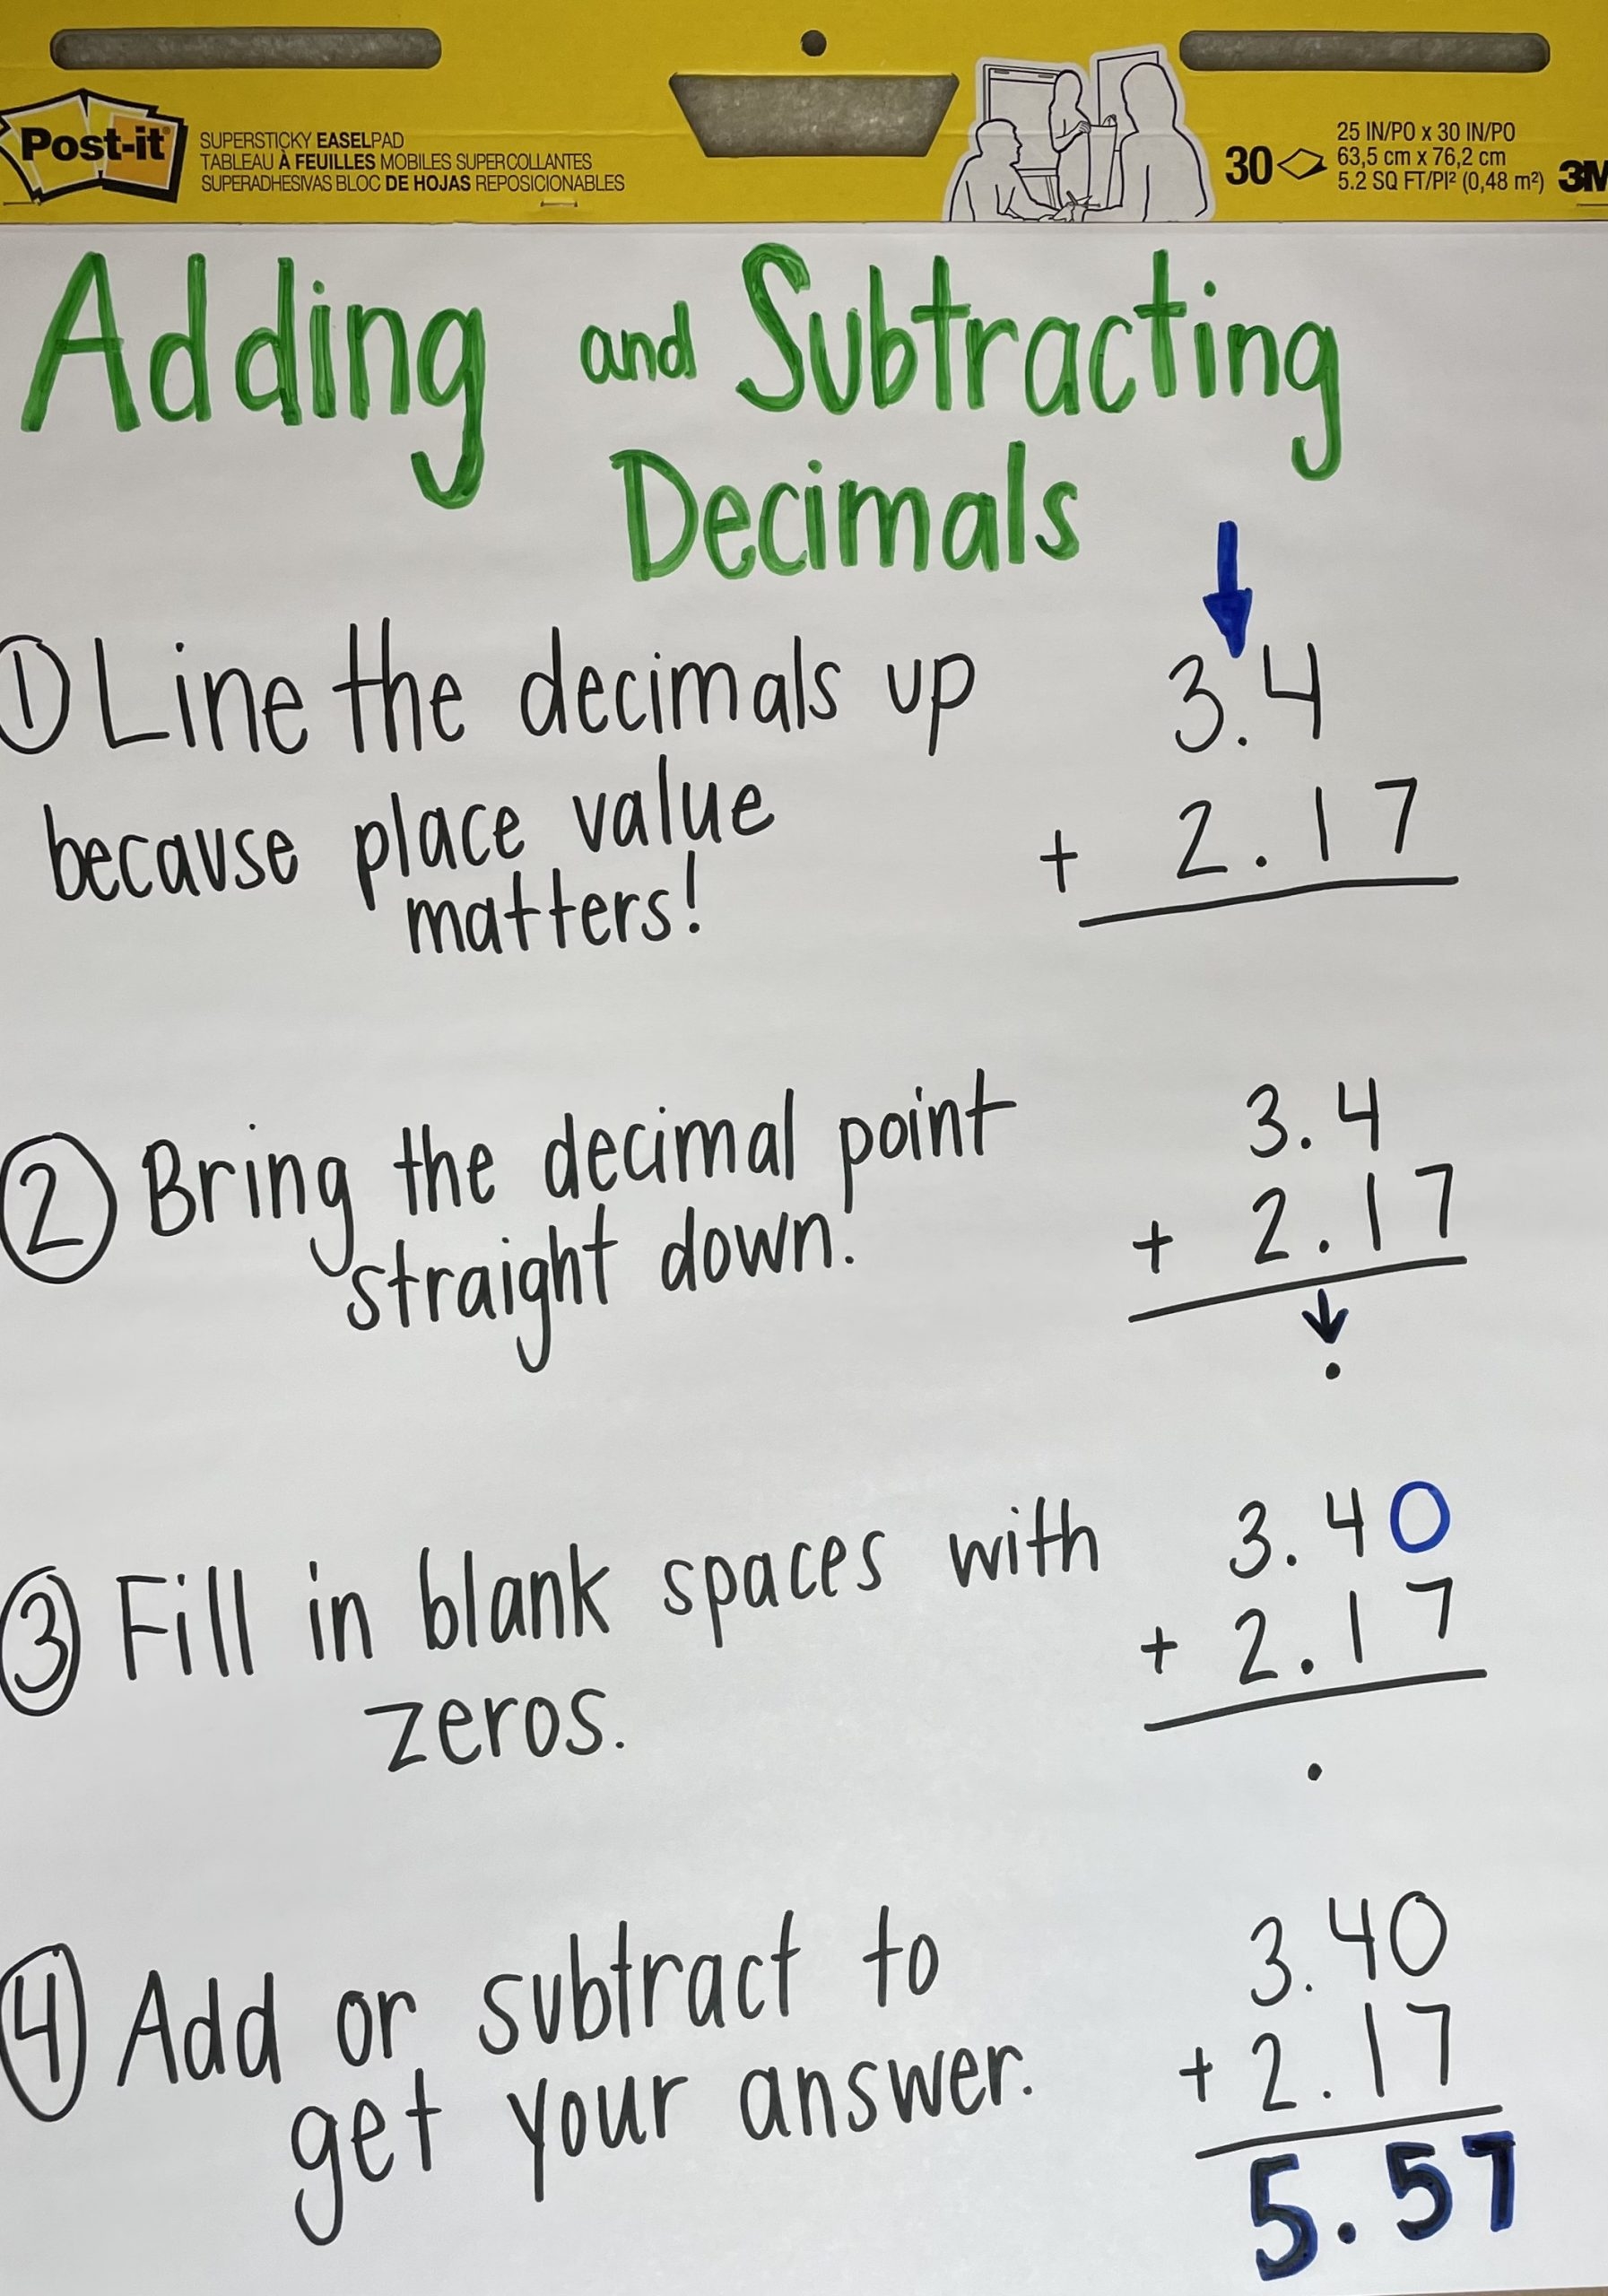 Post-it
SUPERSTICKY EASELPAD
TABLEAU À FEUILLES MOBILES SUPERCOLLANTES
SUPERADHESIVAS BLOC DE HOJAS REPOSICIONABLES
30
25 IN/PO x 30 IN/PO
63,5 cm x 76,2 cm
5.2 SQ FT/PI² (0,48 m²)
3M
Adding and Subtracting
Decimals
① Line the decimals up
because place value
matters!
3.4
+ 2.17
② Bring the decimal point
straight down.
3.4
+ 2.17
.
③ Fill in blank spaces with
zeros.
3.40
+ 2.17
.
④ Add or subtract to
get your answer.
3.40
+ 2.17
5.57